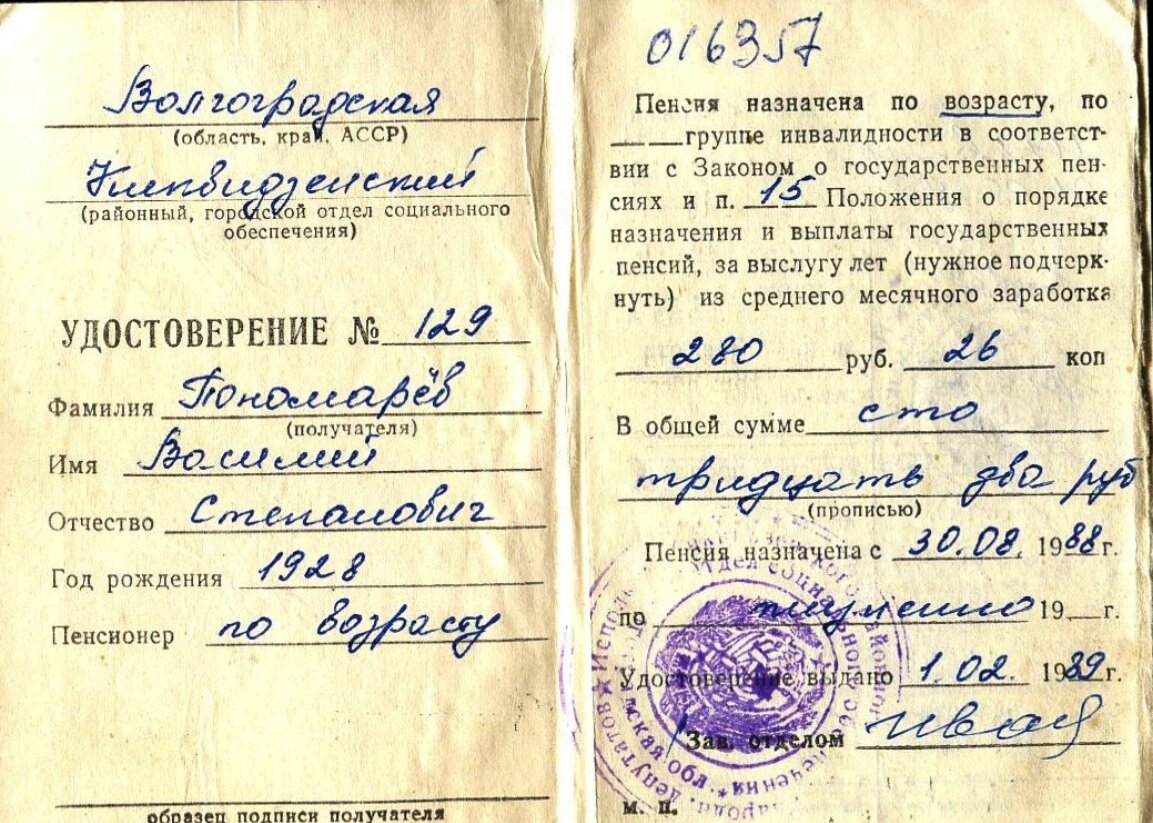 Волгоградская
(область, край, АССР)
Киквидзенский
(районный, городской отдел социального
обеспечения)
УДОСТОВЕРЕНИЕ № 129
Фамилия Пономарёв
(получателя)
Имя Василий
Отчество Степанович
Год рождения 1928
Пенсионер по возрасту
образец подписи получателя
016357
Пенсия назначена по возрасту, по
группе инвалидности в соответст-
вии с Законом о государственных пен-
сиях и п. 15 Положения о порядке
назначения и выплаты государственных
пенсий, за выслугу лет (нужное подчерк-
нуть) из среднего месячного заработка
280 руб. 26 коп
В общей сумме сто
тридцать два руб
(прописью)
Пенсия назначена с 30.08. 1988 г.
по пожизненно 19 г.
Удостоверение выдано 1.02. 1989 г.
Зав. отделом
м. п.